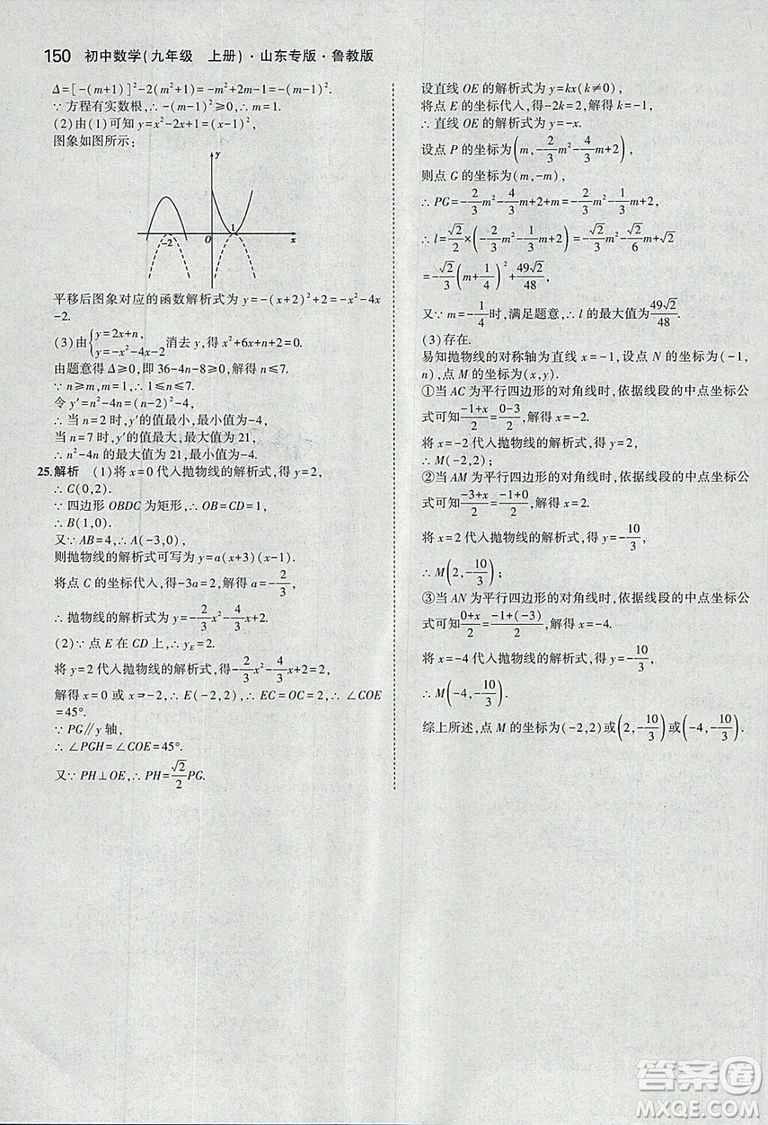 150 初中数学(九年级 上册)·山东专版·鲁教版
Δ=[-(m+1)]²-2(m²+1)=-m²+2m-1=-(m-1)².
∵方程有实数根,∴m=1.
(2)由(1)可知 y=x²-2x+1=(x-1)²,
图象如图所示:
y
-2 O 1 x
平移后图象对应的函数解析式为 y=-(x+2)²+2=-x²-4x
-2.
(3)由{y=2x+n, y=-x²-4x-2 消去 y,得 x²+6x+n+2=0.
由题意得 Δ≥0,即 36-4n-8≥0,解得 n≤7.
∵n≥m,m=1,∴1≤n≤7.
令 y′=n²-4n=(n-2)²-4,
∴当 n=2 时,y′的值最小,最小值为-4,
当 n=7 时,y′的值最大,最大值为 21,
∴n²-4n 的最大值为 21,最小值为-4.
25.解析 (1)将 x=0 代入抛物线的解析式,得 y=2,
∴C(0,2).
∵四边形 OBDC 为矩形,∴OB=CD=1,
∴B(1,0).
又∵AB=4,∴A(-3,0),
则抛物线的解析式可写为 y=a(x+3)(x-1),
将点 C 的坐标代入,得-3a=2,解得 a=-2/3,
∴抛物线的解析式为 y=-2/3x²-4/3x+2.
(2)∵点 E 在 CD 上,∴y_E=2.
将 y=2 代入抛物线的解析式,得-2/3x²-4/3x+2=2,
解得 x=0 或 x=-2,∴E(-2,2),∴EC=OC=2,∴∠COE
=45°.
∵PG∥y 轴,
∴∠PGH=∠COE=45°.
又∵PH⊥OE,∴PH=√2/2PG.
设直线 OE 的解析式为 y=kx(k≠0),
将点 E 的坐标代入,得-2k=2,解得 k=-1,
∴直线 OE 的解析式为 y=-x.
设点 P 的坐标为(m,-2/3m²-4/3m+2),
则点 G 的坐标为(m,-m),
∴PG=-2/3m²-4/3m+2+m=-2/3m²-1/3m+2,
∴l=√2/2×(-2/3m²-1/3m+2)=-√2/3m²-√2/6m+√2
=-√2/3(m+1/4)²+49√2/48,
又∵m=-1/4时,满足题意,∴l 的最大值为49√2/48.
(3)存在.
易知抛物线的对称轴为直线 x=-1,设点 N 的坐标为(-1,
n),点 M 的坐标为(x,y).
①当 AC 为平行四边形的对角线时,依据线段的中点坐标公
式可知(-1+x)/2=(0-3)/2,解得 x=-2,
将 x=-2 代入抛物线的解析式,得 y=2,
∴M(-2,2);
②当 AM 为平行四边形的对角线时,依据线段的中点坐标公
式可知(-3+x)/2=(-1+0)/2,解得 x=2,
将 x=2 代入抛物线的解析式,得 y=-10/3,
∴M(2,-10/3);
③当 AN 为平行四边形的对角线时,依据线段的中点坐标公
式可知(0+x)/2=(-1+(-3))/2,解得 x=-4,
将 x=-4 代入抛物线的解析式,得 y=-10/3,
∴M(-4,-10/3).
综上所述,点 M 的坐标为(-2,2)或(2,-10/3)或(-4,-10/3).
答案圈
MXQE.COM